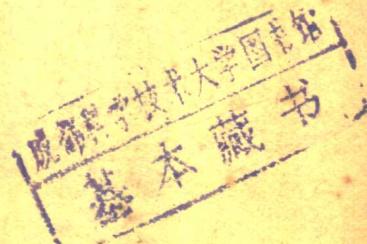 成都科学技术大学图书馆
基本藏书